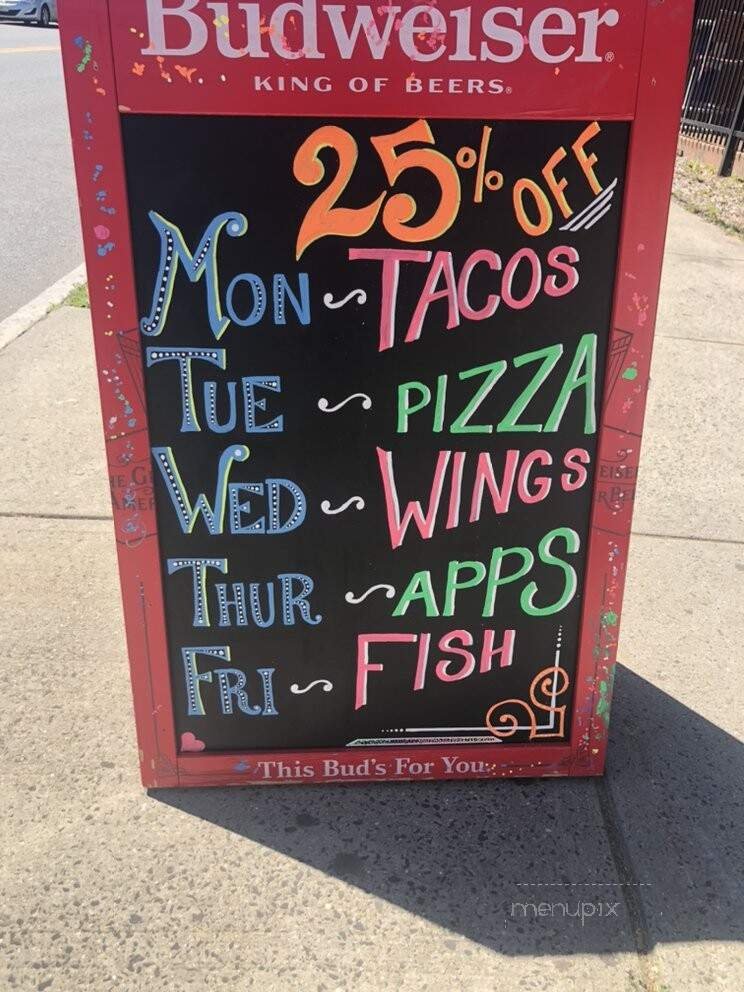 Budweiser®
KING OF BEERS®
25% OFF
MON ~ TACOS
TUE ~ PIZZA
WED ~ WINGS
THUR ~ APPS
FRI ~ FISH
This Bud's For You®
menupix